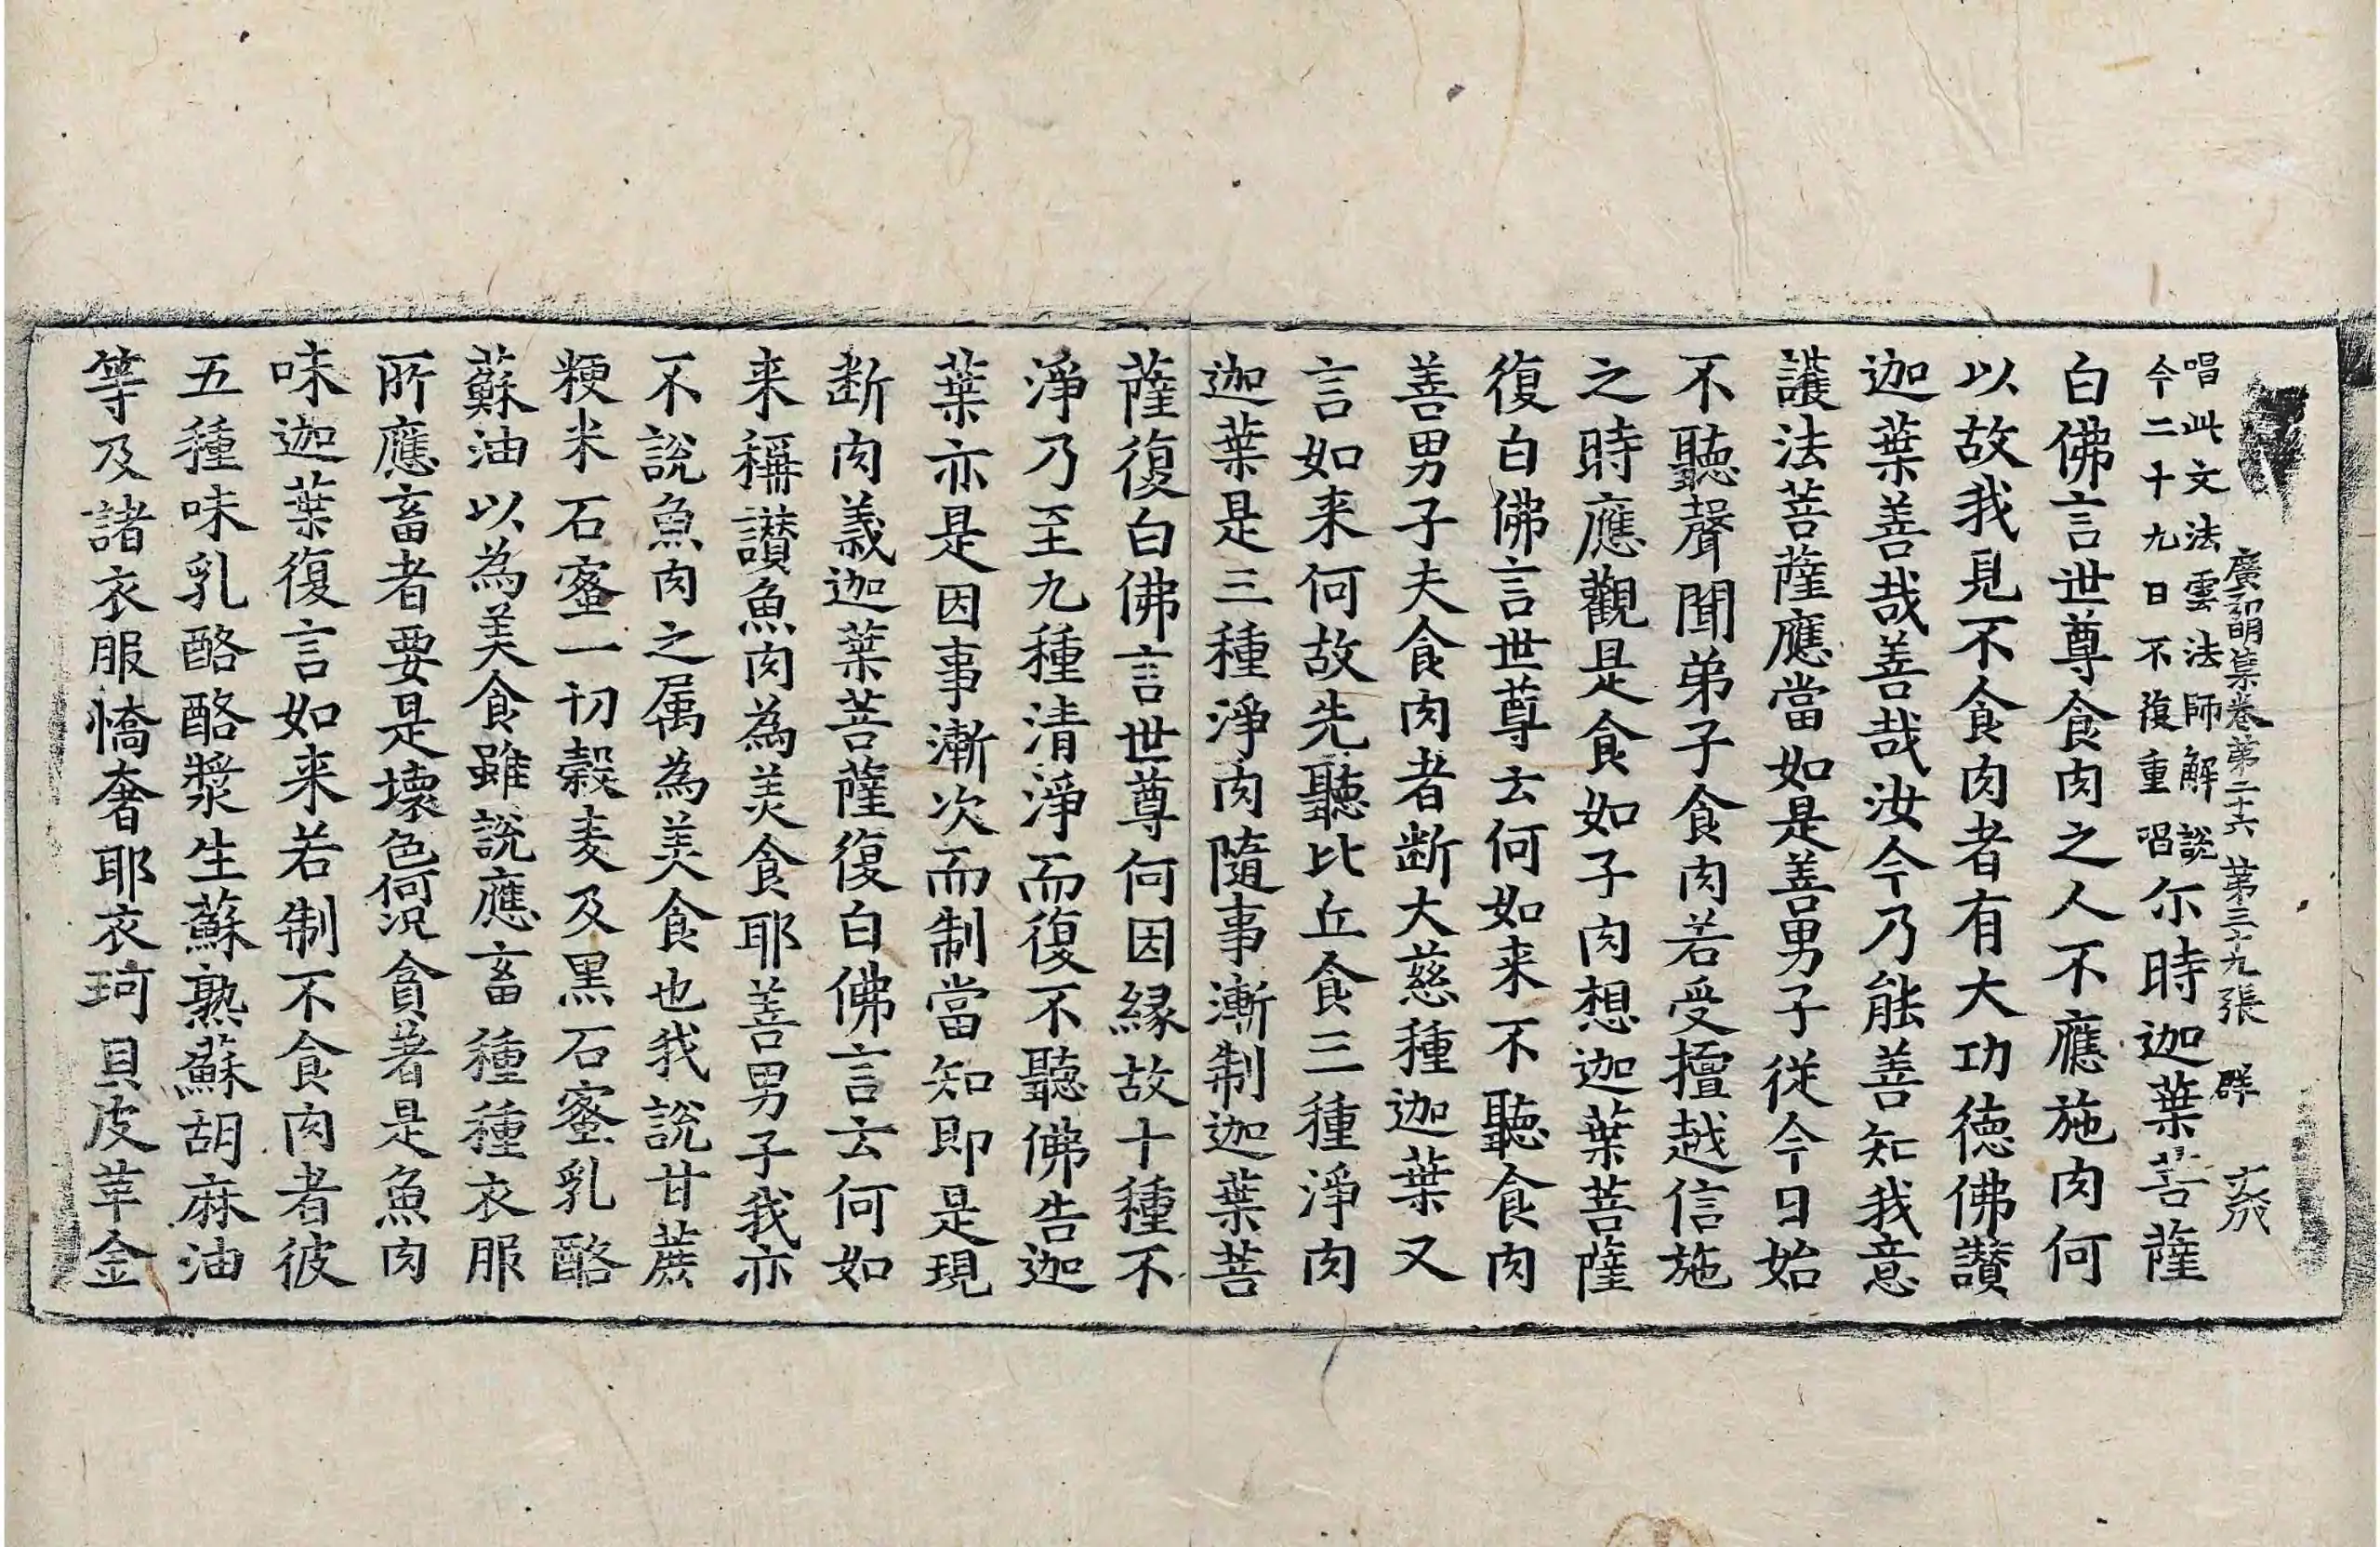 廣弘明集卷第二十六 第三十九張 群
唱此文法雲法師解說
今二十九日不復重唱
尒時迦葉菩薩
白佛言世尊食肉之人不應施肉何
以故我見不食肉者有大功德佛讃
迦葉善哉善哉汝今乃能善知我意
護法菩薩應當如是善男子從今日始
不聽聲聞弟子食肉若受擅越信施
之時應觀是食如子肉想迦葉菩薩
復白佛言世尊云何如来不聽食肉
善男子夫食肉者断大慈種迦葉又
言如来何故先聽比丘食三種淨肉
迦葉是三種淨肉隨事漸制迦葉菩
薩復白佛言世尊何因縁故十種不
淨乃至九種清淨而復不聽佛告迦
葉亦是因事漸次而制當知即是現
断肉義迦葉菩薩復白佛言云何如
来稱讃魚肉為美食耶善男子我亦
不說魚肉之属為美食也我說甘蔗
粳米石蜜一切穀麦及黒石蜜乳酪
蘇油以為美食雖說應畜種種衣服
所應畜者要是壊色何況貪著是魚肉
味迦葉復言如来若制不食肉者彼
五種味乳酪酪漿生蘇熟蘇胡麻油
等及諸衣服憍奢耶衣珂貝皮革金